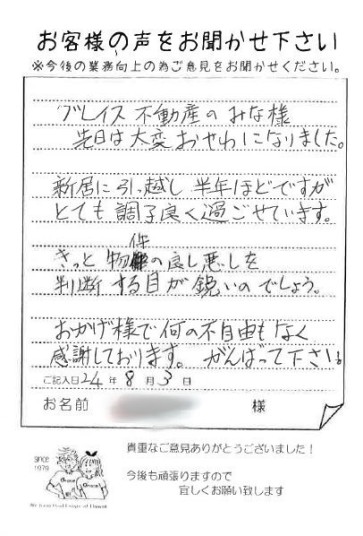 お客様の声をお聞かせ下さい
※今後の業務向上の為ご意見をお聞かせください。
グレイス不動産のみな様
先日は大変おせわになりました。
新居に引っ越し半年ほどですが
とても調子良く過ごせています。
きっと物件の良し悪しを
判断する目が鋭いのでしょう。
おかげ様で何の不自由もなく
感謝しております。がんばって下さい。
ご記入日24年8月3日
お名前 様
貴重なご意見ありがとうございました！
今後も頑張りますので
宜しくお願い致します
SINCE
1979